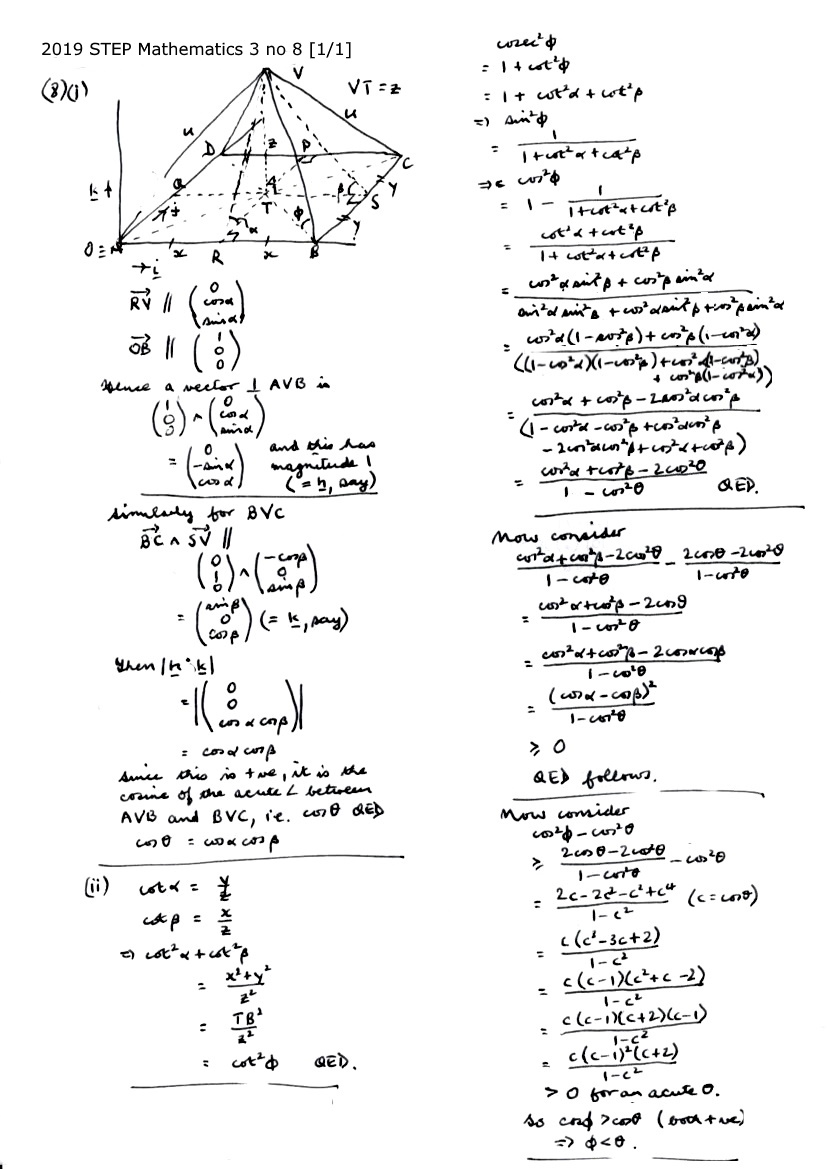 2019 STEP Mathematics 3 no 8 [1/1]
(8)(i)
V
VT = z
u
u
D
z
P
C
k
Q
A
T
β
S
y
y
α
φ
O ≡ A
x
R
x
B
→ i
RV→ // (0, cosα, sinα)
OB→ || (1, 0, 0)
Hence a vector ⊥ AVB is
(1, 0, 0) ∧ (0, cosα, sinα)
= (0, -sinα, cosα) and this has magnitude 1 (= n, say)
Similarly for BVC
BC→ ∧ SV→ //
(0, 1, 0) ∧ (-cosβ, 0, sinβ)
= (sinβ, 0, cosβ) (= k, say)
Then |n · k|
= |(0, 0, cosα cosβ)|
= cosα cosβ
Since this is +ve, it is the
cosine of the acute ∠ between
AVB and BVC, i.e. cosθ QED
cosθ = cosα cosβ
(ii) cotα = y/z
cotβ = x/z
⇒ cot²α + cot²β
= (x² + y²)/z²
= TB²/z²
= cot²φ QED.
cosec²φ
= 1 + cot²φ
= 1 + cot²α + cot²β
⇒ sin²φ
= 1/(1 + cot²α + cot²β)
⇒ cos²φ
= 1 - 1/(1 + cot²α + cot²β)
= (cot²α + cot²β)/(1 + cot²α + cot²β)
= (cos²α sin²β + cos²β sin²α)/(sin²α sin²β + cos²α sin²β + cos²β sin²α)
= (cos²α(1 - cos²β) + cos²β(1 - cos²α))/((1 - cos²α)(1 - cos²β) + cos²α(1 - cos²β) + cos²β(1 - cos²α))
= (cos²α + cos²β - 2cos²α cos²β)/(1 - cos²α - cos²β + cos²α cos²β - 2cos²α cos²β + cos²α + cos²β)
= (cos²α + cos²β - 2cos²θ)/(1 - cos²θ) QED.
Now consider
(cos²α + cos²β - 2cos²θ)/(1 - cos²θ) - (2cosθ - 2cos²θ)/(1 - cos²θ)
= (cos²α + cos²β - 2cosθ)/(1 - cos²θ)
= (cos²α + cos²β - 2cosα cosβ)/(1 - cos²θ)
= (cosα - cosβ)²/(1 - cos²θ)
≥ 0
QED follows.
Now consider
cos²φ - cos²θ
≥ (2cosθ - 2cos²θ)/(1 - cos²θ) - cos²θ
= (2c - 2c² - c² + c⁴)/(1 - c²) (c = cosθ)
= c(c³ - 3c + 2)/(1 - c²)
= c(c - 1)(c² + c - 2)/(1 - c²)
= c(c - 1)(c + 2)(c - 1)/(1 - c²)
= c(c - 1)²(c + 2)/(1 - c²)
> 0 for an acute θ.
So cosφ > cosθ (both +ve)
⇒ φ < θ.